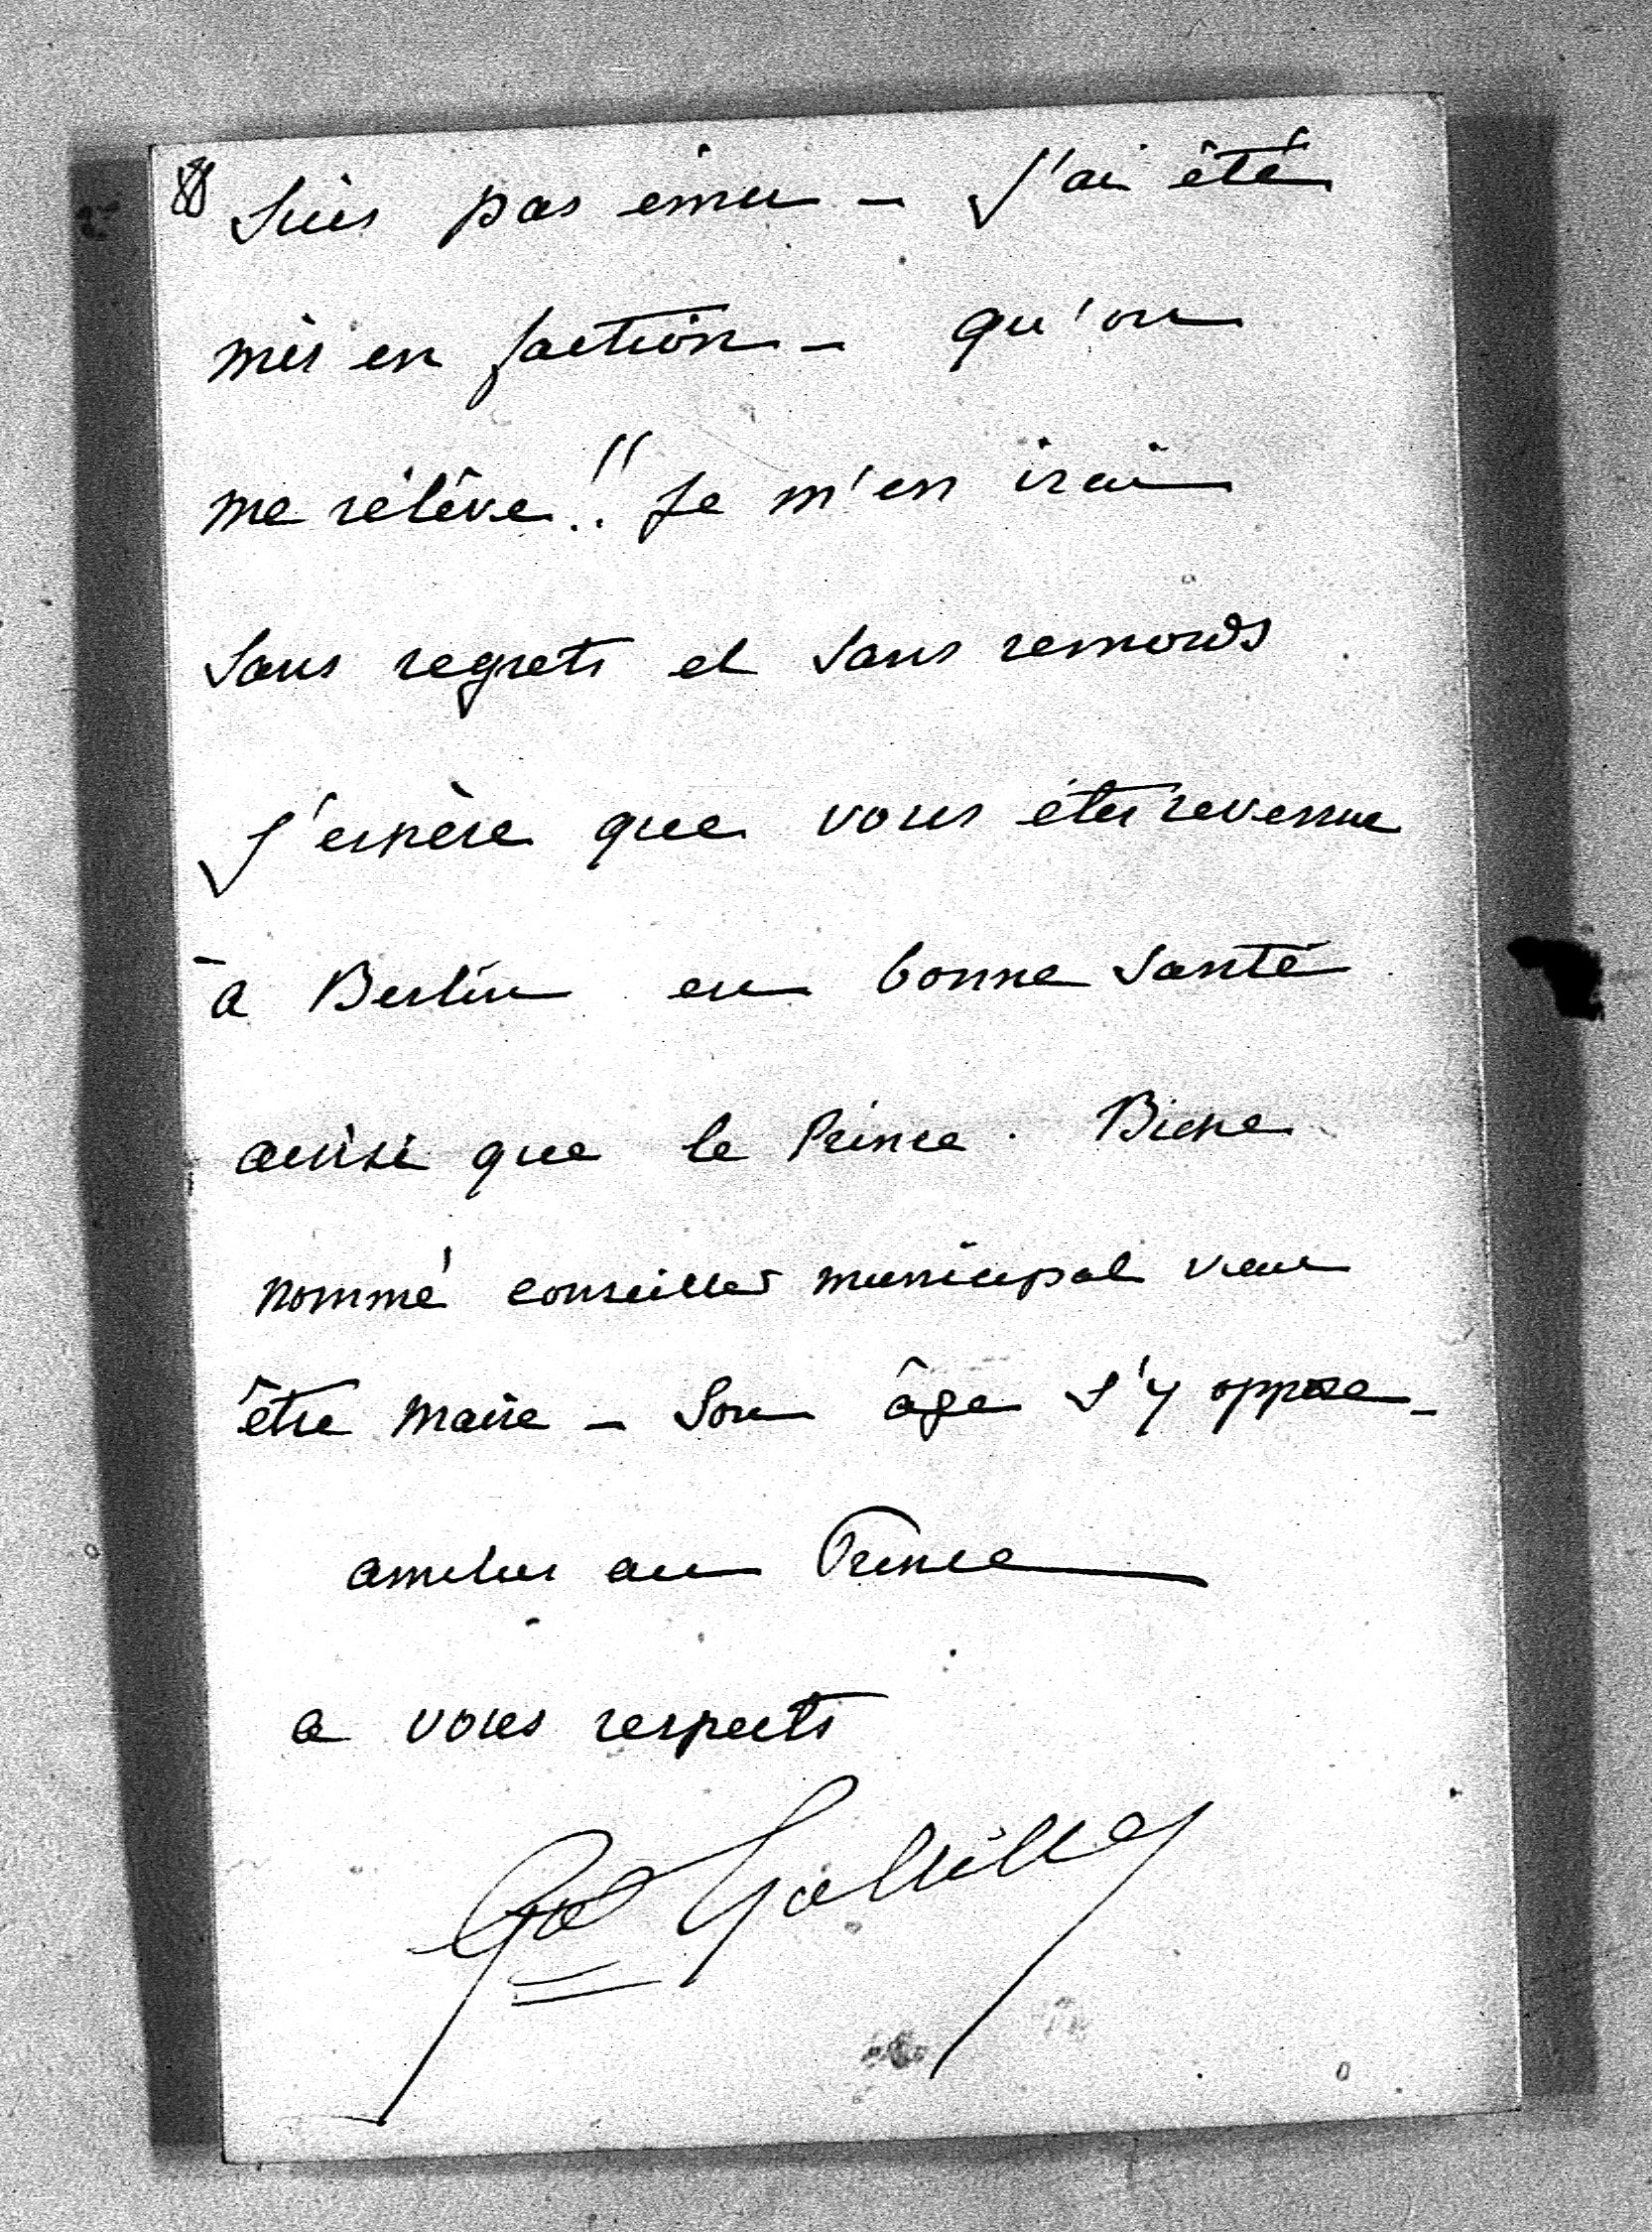 88 suis pas ému _ J'ai été
mis en faction _ qu'on
me relève !! Je m'en irai
sans regrets et sans remords
J'espère que vous êtes revenue
à Berlin en bonne santé
ainsi que le Prince. Biche
nommé conseiller municipal veut
être maire _ Son âge s'y oppose _
amitiés au Prince
a vous respects
Gal Galliffet